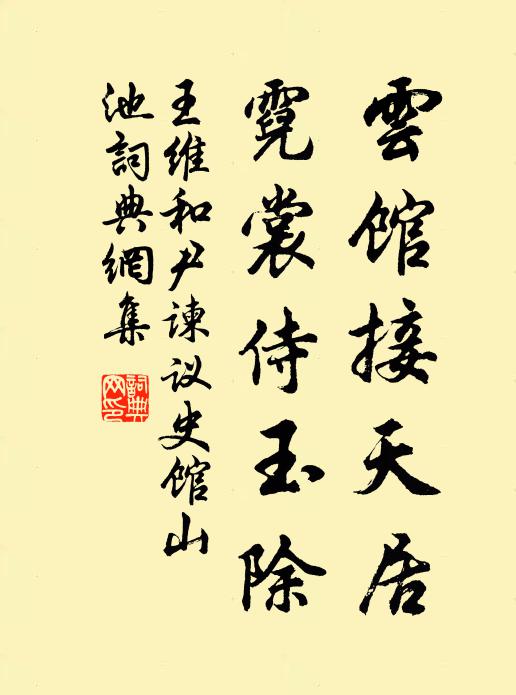 雲馆接天居
霓裳侍玉除
王维和尹谏议史馆山
池詞典網集
詞典网印